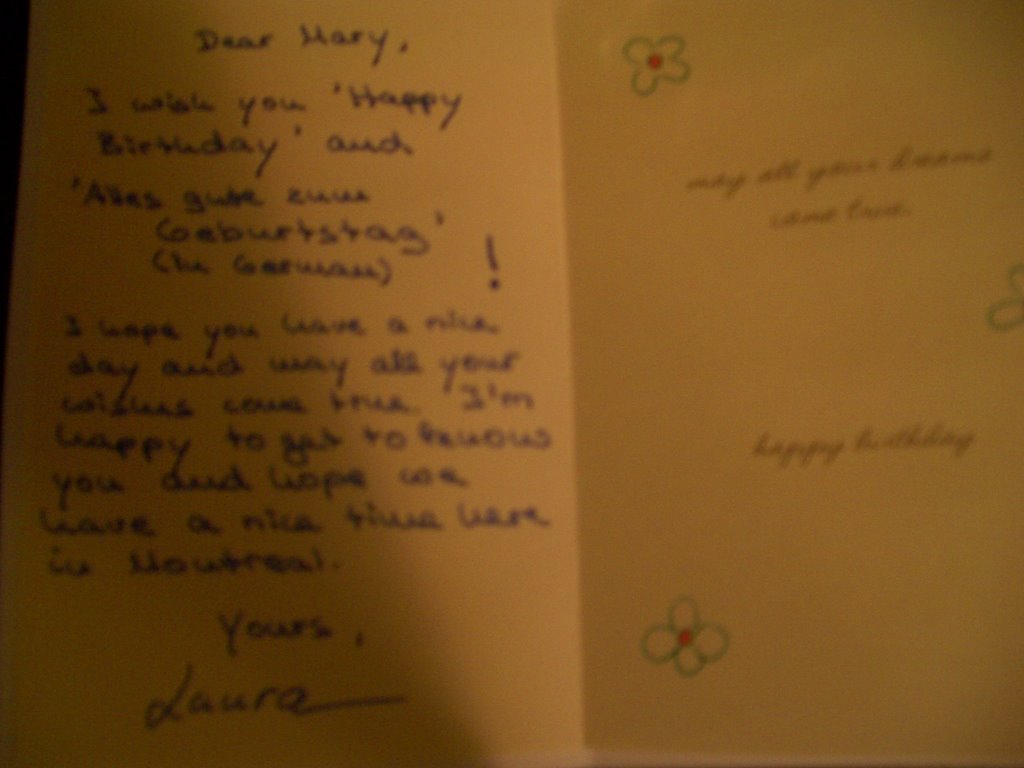 Dear Mary,
I wish you 'Happy
Birthday' and
'Alles gute zum
Geburtstag'
(In German) !
I hope you have a nice
day and may all your
wishes come true. I'm
happy to get to know
you and hope we
have a nice time here
in Montreal.
Yours,
Laura
may all your dreams
come true.
happy birthday